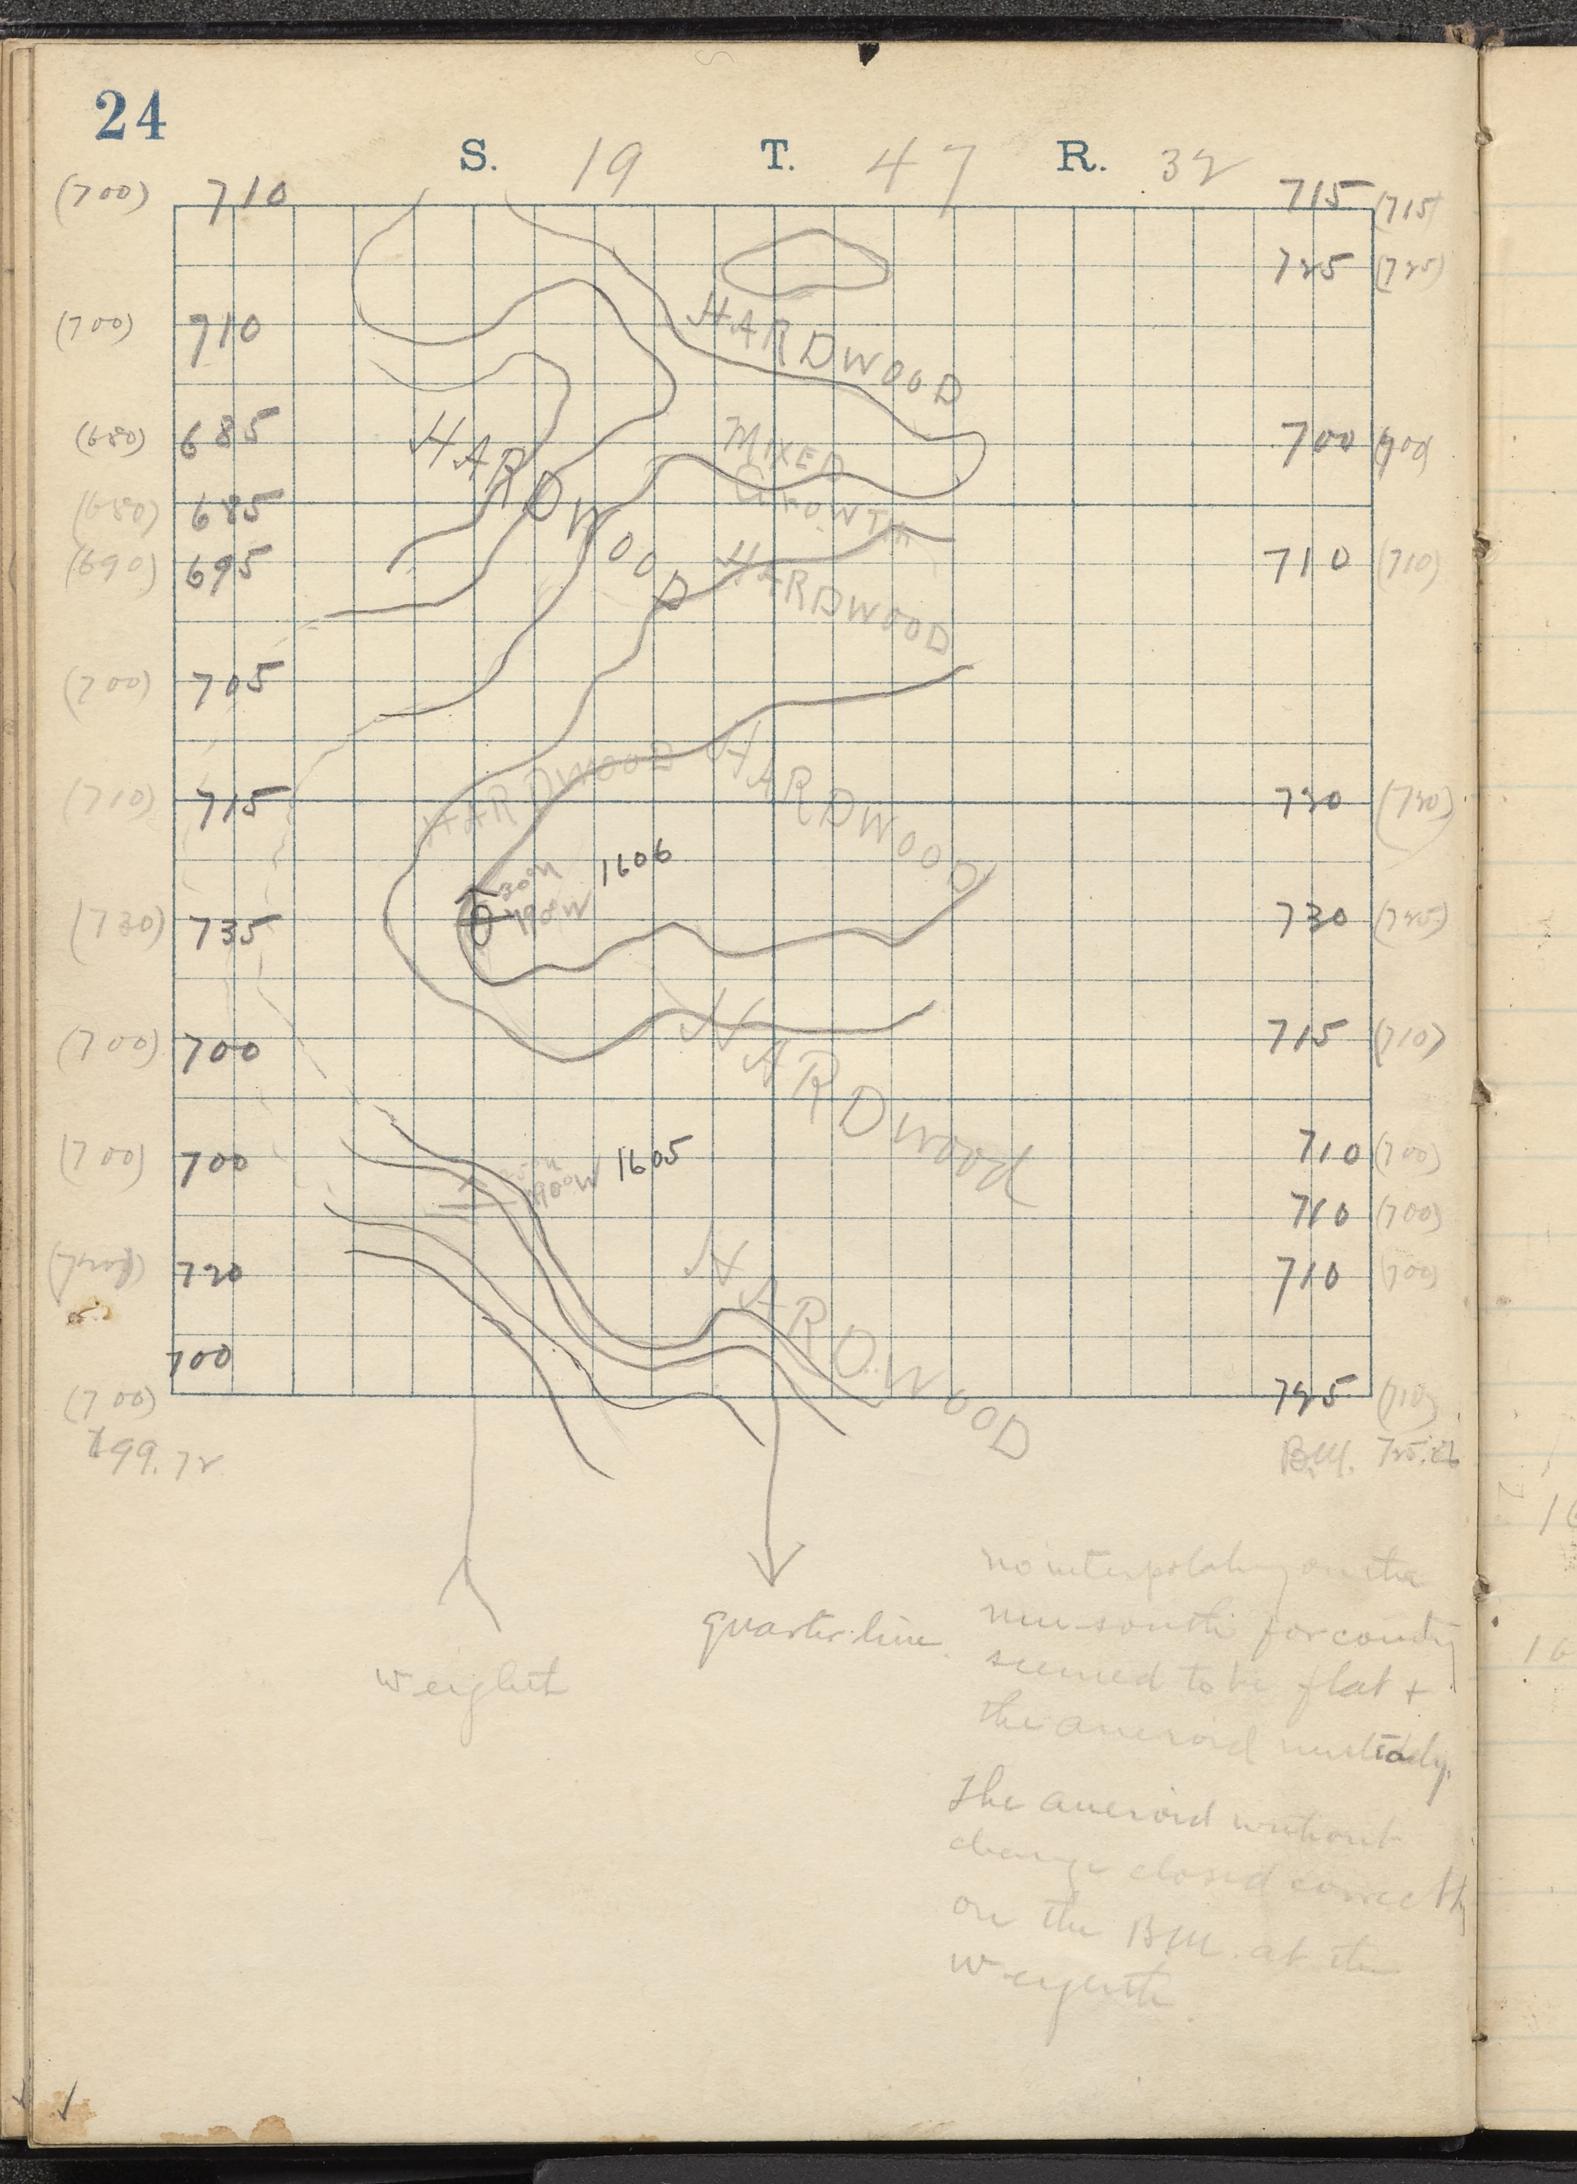 24
S. 19 T. 47 R. 32
(700) 710 715 (715)
725 (725)
HARDWOOD
(700) 710
HARDWOOD
MIXED
GROWTH
(680) 685 700 (700)
(680) 685
(690) 695 710 (710)
HARDWOOD
(700) 705
HARDWOOD
HARDWOOD
(710) 715 720 (720)
30°N 1606
W
(730) 735 730 (725)
(700) 700 715 (710)
HARDwood
(700) 700 710 (700)
N 1605
1900W
710 (700)
720 710 (700)
HARDWOOD
700
(700) 725 (710)
699.72 B.M. 725.26
quarter line
weight
no interpolating on the
run south for country
seemed to be flat +
the aneroid unsteady.
The aneroid without
change closed correctly
on the BM. at the
weighth